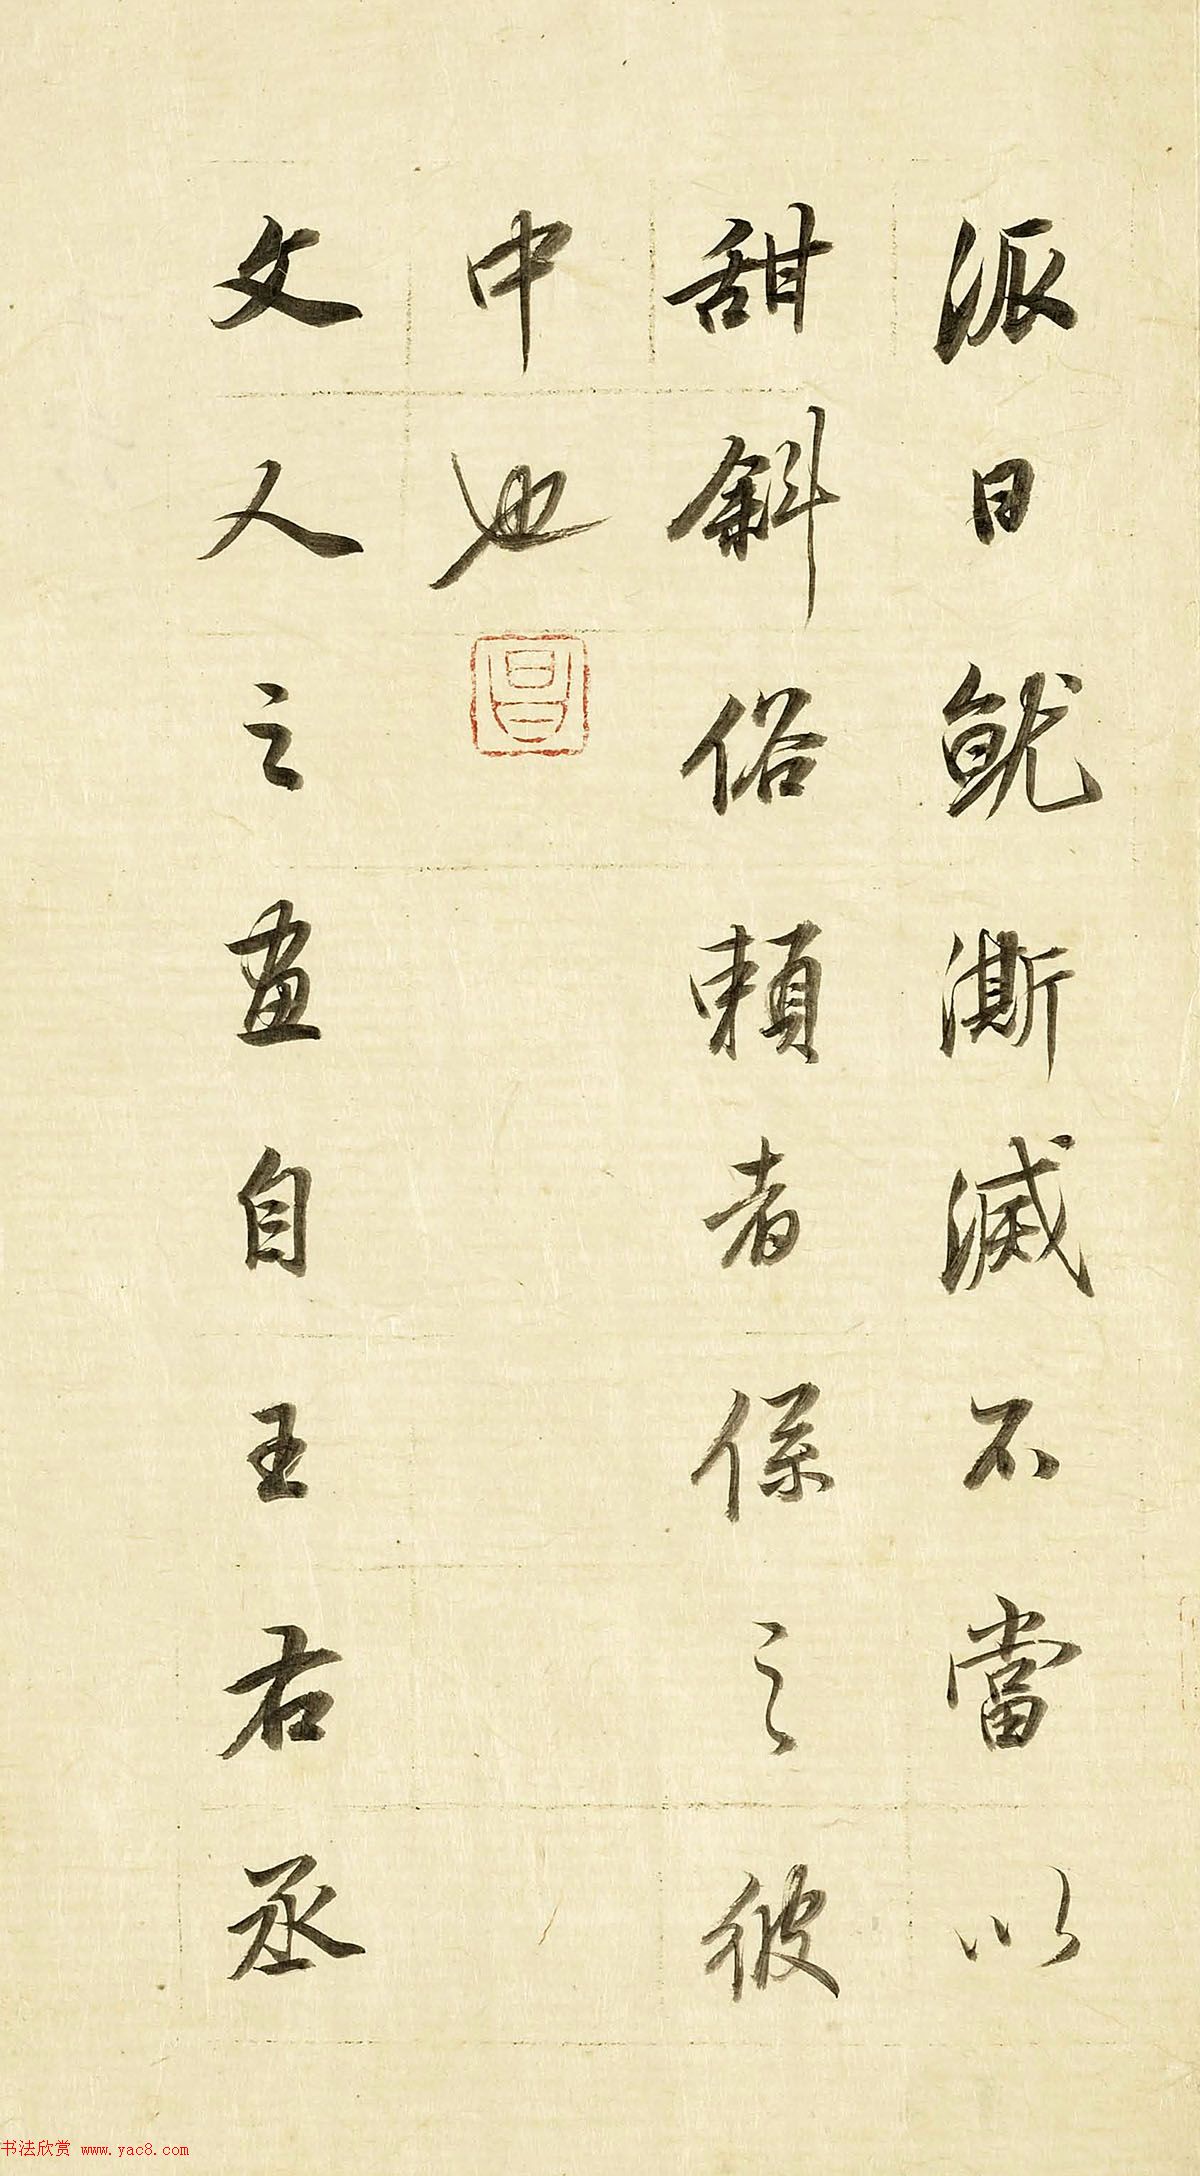 派日就澌滅不當以
甜斜俗賴者係之彼
中也
昌
文人之畫自王右丞
书法欣赏 www.yac8.com